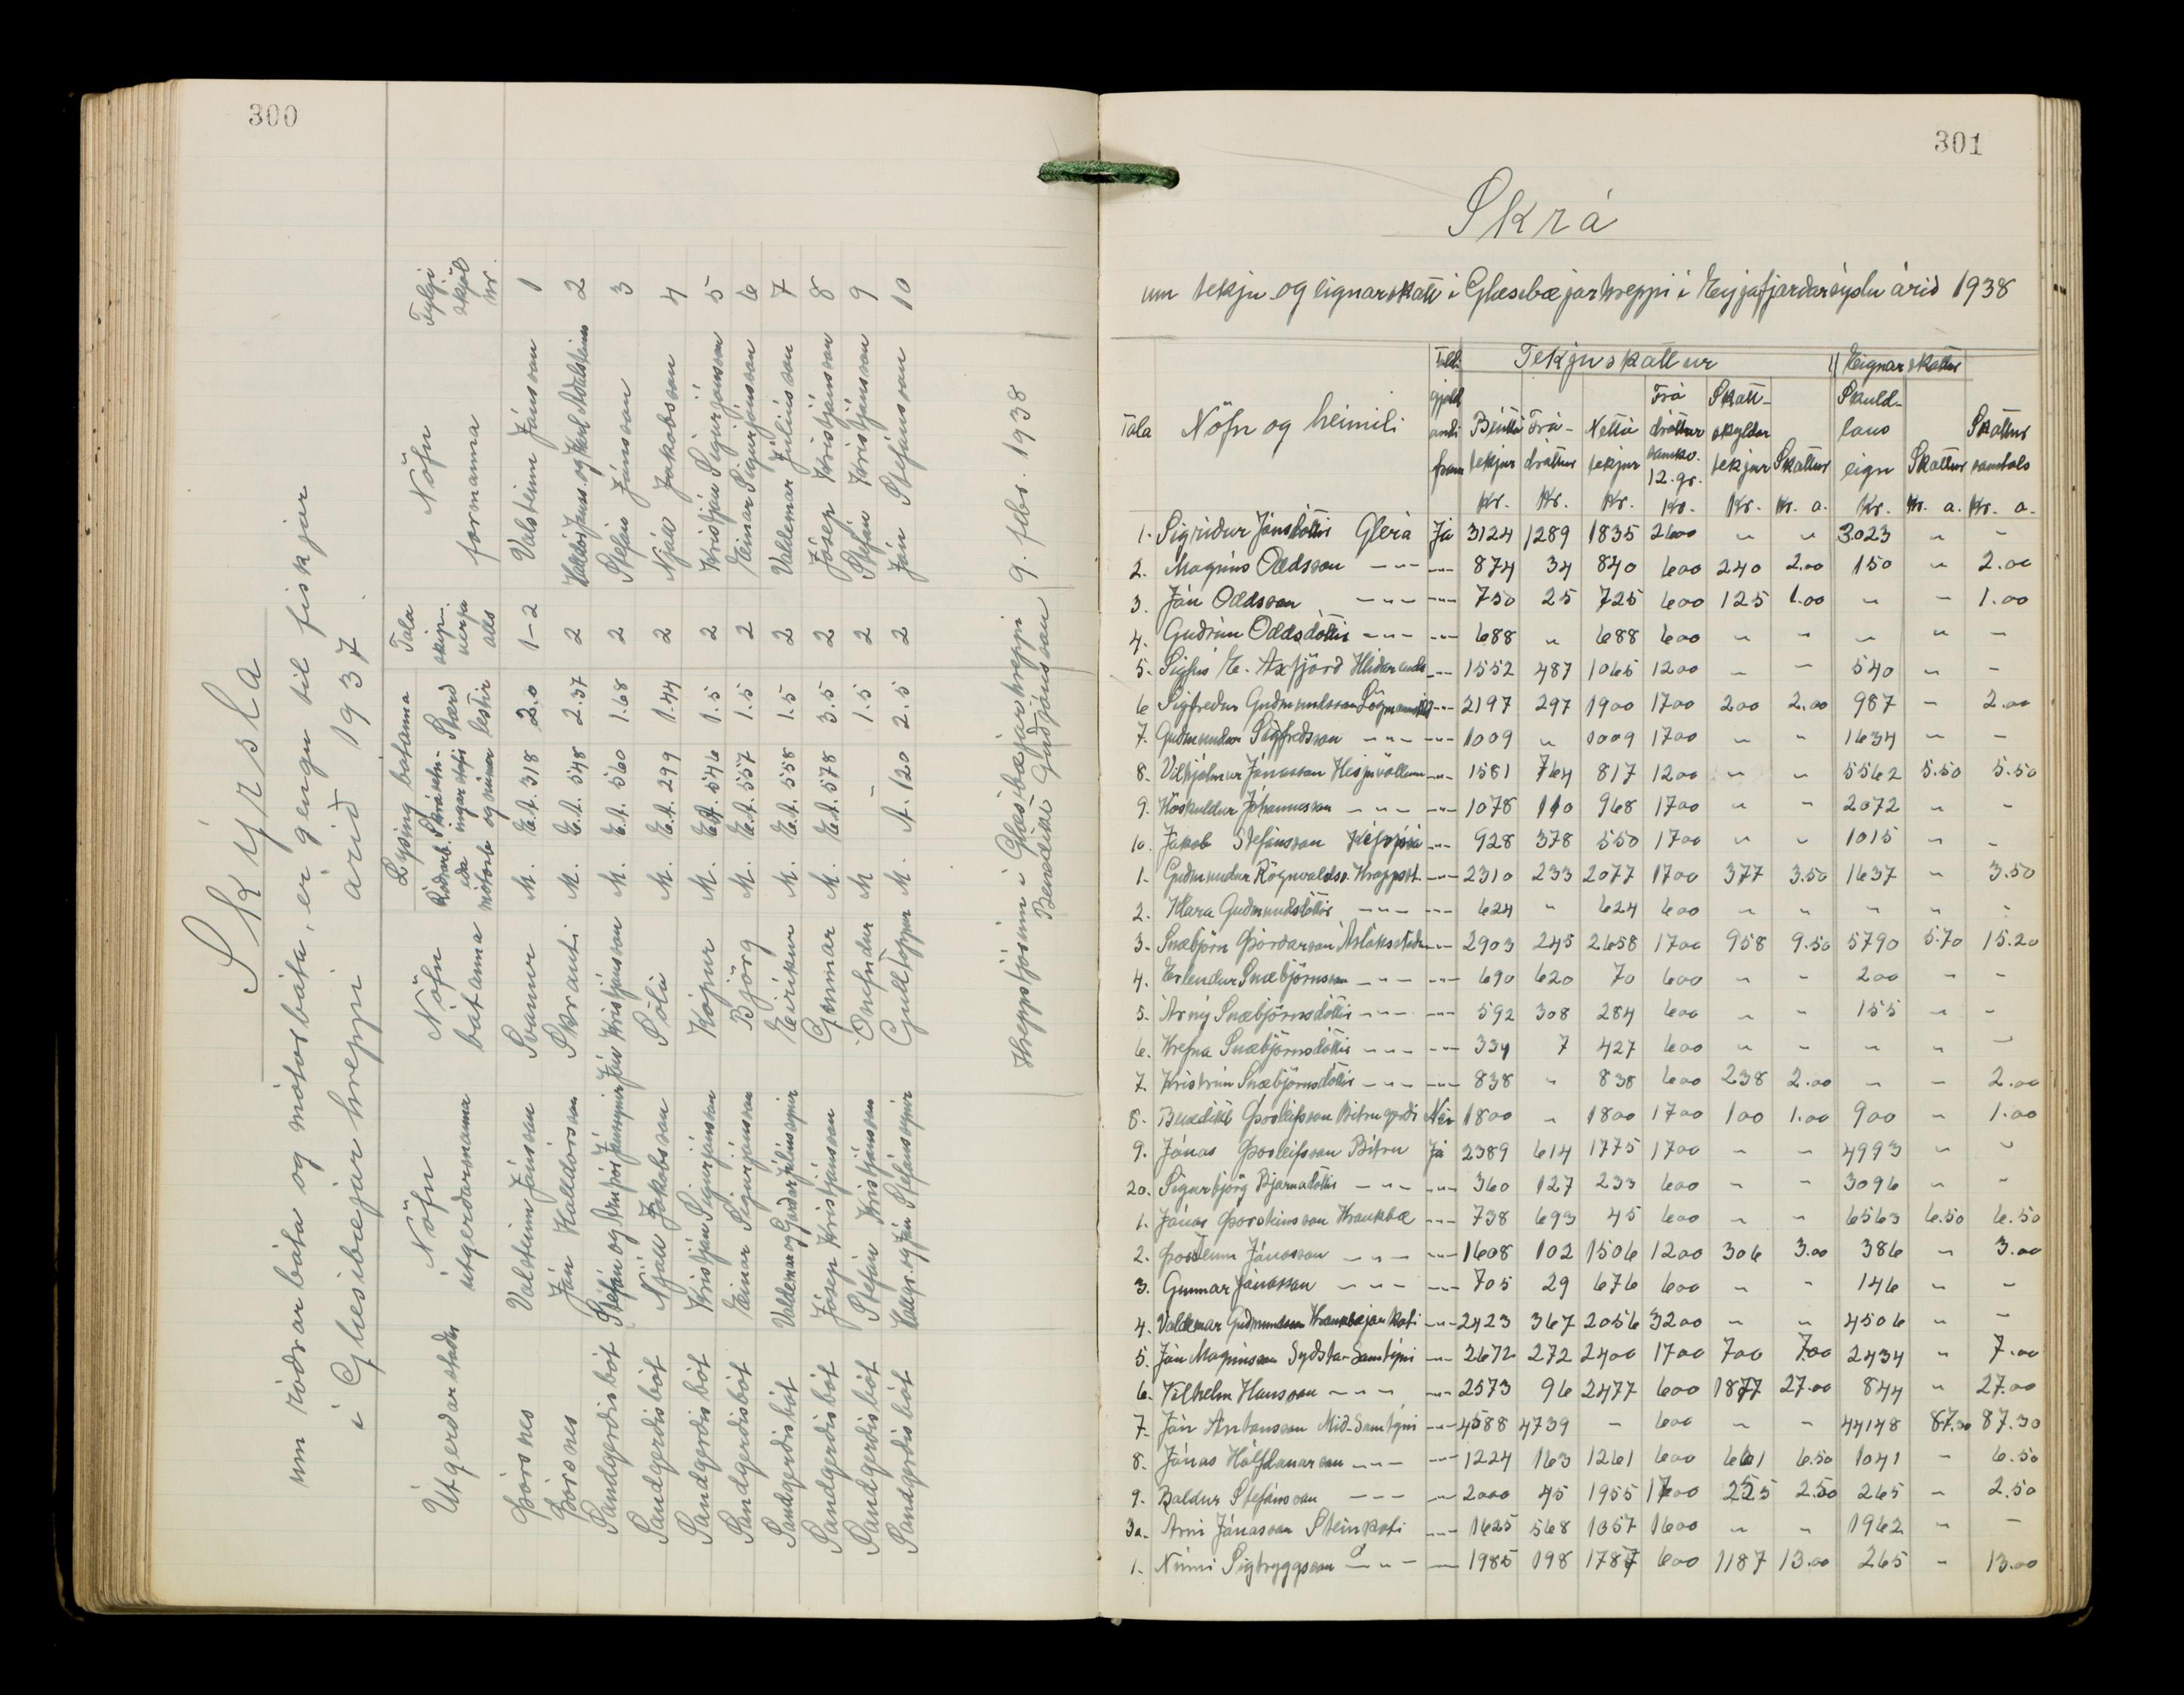 300
Skýrsla
um róðrarbáta og mótorbáta, er gengu til fiskjar
í Glæsibæjarhreppi árið 1937.
Útgerðarstaður | Nöfn útgerðarmanna | Nöfn bátanna | Lýsing bátanna: Róðrarb. eða mótorb. | Skrásetningarstafir og númer | Stærð lestir | Tala skipverja alls | Nöfn formanna | Fylgiskjöl nr.
Þórsnes Valsteinn Jónsson Svanur M. E.A. 318 2.0 1-2 Valsteinn Jónsson 1
Þórsnes Jón Halldórsson Skrauti M. E.A. 548 2.37 2 Halldór Jónss. og Karl Aðalsteinss 2
Sandgerðisbót Stefán og Arnþór Jónssynir Jón Kristjánsson M. E.A. 560 1.68 2 Stefán Jónsson 3
Sandgerðisbót Njáll Jakobsson Sóli M. E.A. 299 1.44 2 Njáll Jakobsson 4
Sandgerðisbót Kristján Sigurjónsson Kópur M. E.A. 546 1.5 2 Kristján Sigurjónsson 5
Sandgerðisbót Einar Sigurjónsson Björg M. E.A. 557 1.5 2 Einar Sigurjónsson 6
Sandgerðisbót Valdemar og Garðar Júlíussynir Eiríkur M. E.A. 558 1.5 2 Valdemar Júlíusson 7
Sandgerðisbót Jósep Kristjánsson Gunnar M. E.A. 578 3.5 2 Jósep Kristjánsson 8
Sandgerðisbót Stefán Kristjánsson Ónefndur M - 1.5 2 Stefán Kristjánsson 9
Sandgerðisbót Hallgr. og Jón Stefánssynir Gulltoppur M. A. 120 2.5 2 Jón Stefánsson 10
Hreppstjórinn í Glæsibæjarhreppi 9. febr. 1938
Benedikt Guðjónsson
301
Skrá
um tekju og eignarskatt í Glæsibæjarhreppi í Eyjafjarðarsýslu árið 1938
Tala | Nöfn og heimili | gjald | fram | Tekjuskattur: Brúttó tekjur Kr. | Frádráttur Kr. | Nettó tekjur Kr. | Frádráttur samkv. 12. gr. Kr. | Skattskyldar tekjur Kr. | Skattur Kr. a. | Eignarskattur: Skuldlaus eign Kr. | Skattur Kr. a. | Skattur samtals Kr. a.
1. Sigríður Jónsdóttir Glerá Já 3124 1289 1835 2600 " " 3023 " -
2. Magnús Oddsson -"- -"- 874 34 840 600 240 2.00 150 " 2.00
3. Jón Oddsson -"- -"- 750 25 725 600 125 1.00 " - 1.00
4. Guðrún Oddsdóttir -"- -"- 688 " 688 600 " " " " -
5. Sigfús E. Axfjörð Hlíðarenda -"- 1552 487 1065 1200 - - 540 " -
6 Sigfreður Guðmundsson Lögmannshl. -"- 2197 297 1900 1700 200 2.00 987 - 2.00
7. Guðmundur Sigfredsson -"- -"- 1009 " 1009 1700 " " 1634 - -
8. Vilhjálmur Jónasson Hesjuvöllum -"- 1581 764 817 1200 " " 5562 5.50 5.50
9. Höskuldur Jóhannesson -"- -"- 1078 110 968 1700 " " 2072 " -
10. Jakob Stefánsson Kífsá -"- 928 378 550 1700 " " 1015 " -
1. Guðmundur Rögnvaldss. Kroppst. -"- 2310 233 2077 1700 377 3.50 1637 " 3.50
2. Klara Guðmundsdóttir -"- -"- 624 " 624 600 " " " " -
3. Snæbjörn Þórðarson Ásláksstöðum -"- 2903 245 2658 1700 958 9.50 5790 5.70 15.20
4. Erlendur Snæbjörnsson -"- -"- 690 620 70 600 " " 200 " -
5. Árný Snæbjörnsdóttir -"- -"- 592 308 284 600 " " 155 " -
6. Hrefna Snæbjörnsdóttir -"- -"- 334 7 427 600 " " " " -
7. Kristrún Snæbjörnsdóttir -"- -"- 838 " 838 600 238 2.00 " - 2.00
8. Benedikt Þorleifsson Bitrugerði Nei 1800 " 1800 1700 100 1.00 900 - 1.00
9. Jónas Þorleifsson Bitru Já 2389 614 1775 1700 - - 4993 " -
20. Sigurbjörg Bjarnadóttir -"- -"- 360 127 233 600 - - 3096 " -
1. Jónas Þorsteinsson Kraukbæ -"- 738 693 45 600 - - 6563 6.50 6.50
2. Þorsteinn Jónasson -"- -"- 1608 102 1506 1200 306 3.00 386 " 3.00
3. Gunnar Jónasson -"- -"- 705 29 676 600 " - 146 " -
4. Valdemar Guðmundsson Kraukbæjarkoti -"- 2423 367 2056 3200 - " 4506 " -
5. Jón Magnússon Syðsta-Samtýni -"- 2672 272 2400 1700 700 7.00 2434 " 7.00
6. Vilhelm Hansson -"- -"- 2573 96 2477 600 1877 27.00 844 " 27.00
7. Jón Antonsson Mið-Samtýni -"- 4588 4739 - 600 - - 44148 87.30 87.30
8. Jónas Hálfdanarson -"- -"- 1224 163 1261 600 661 6.50 1041 - 6.50
9. Baldur Stefánsson -"- -"- 2000 45 1955 1700 255 2.50 265 - 2.50
30. Árni Jónasson Steinkoti -"- 1625 568 1057 1600 " " 1962 " -
1. Númi Sigtryggsson -"- -"- 1985 198 1787 600 1187 13.00 265 - 13.00